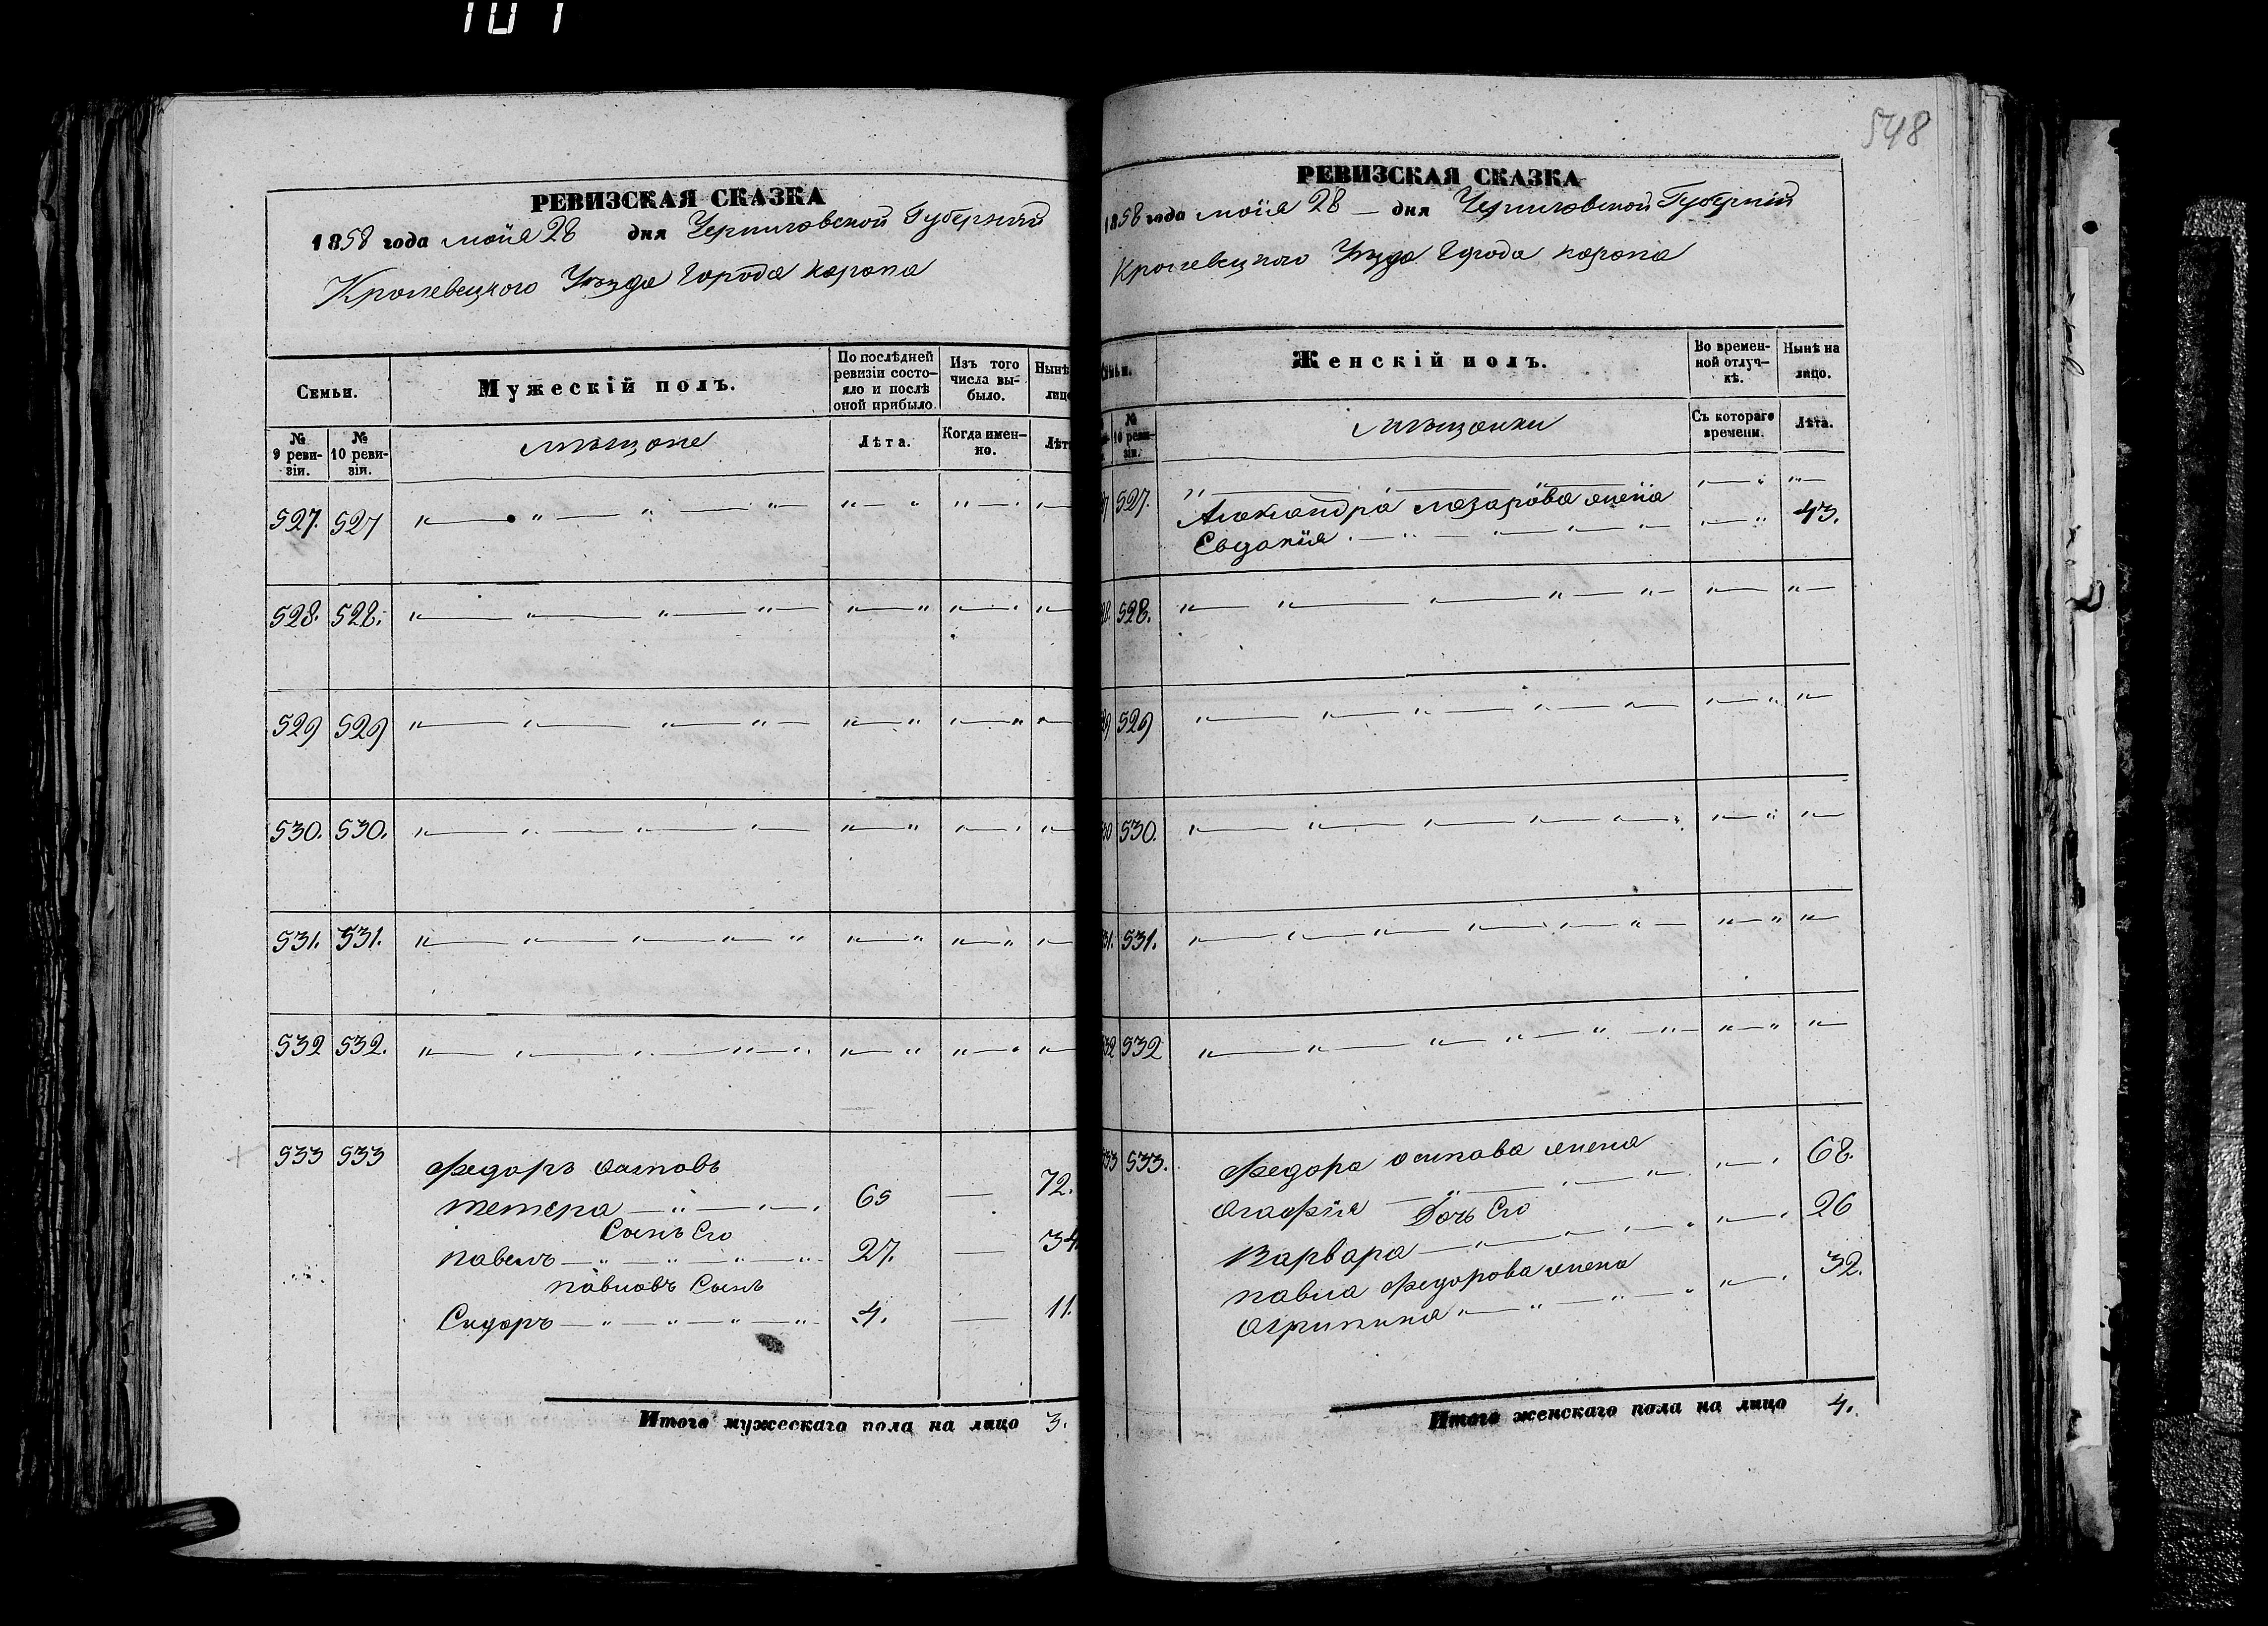 101
РЕВИЗСКАЯ СКАЗКА
1858 года маія 28 дня Черниговской Губерніи
Кролевецкого Уѣзда Города Коропа
Семьи.
Мужескій полъ.
По послѣдней ревизіи состо-
яло и послѣ
оной прибыло.
Изъ того
числа вы-
было.
Нынѣ
лицо
№
9 реви-
зіи.
№
10 реви-
зіи.
мѣщане
Лѣта.
Когда имен-
но.
Лѣт
527. 527
528. 528.
529 529
530. 530.
531. 531.
532 532.
533 533
Федоръ Осиповъ
Тетера 65 — 72.
Сынъ Его
Павелъ 27. — 34
Павловъ Сынъ
Сидоръ 4. — 11.
Итого мужескаго пола на лицо 3.
548
РЕВИЗСКАЯ СКАЗКА
1858 года маія 28 — дня Черниговской Губерніи
Кролевецкого Уѣзда Города Коропа
Женскій полъ.
Во времен-
ной отлуч-
кѣ.
Нынѣ на
лицо.
№
10 реви-
зіи.
мѣщанки
Съ котораго
времени.
Лѣта.
527.
Александра Лазарова жена
Евдокія 43.
528.
529
530.
531.
532
533.
Федора Осипова жена
Агафія 68.
Дочь Его
Варвара 26
Павла Федорова жена
Агрипина 32.
Итого женскаго пола на лицо 4.